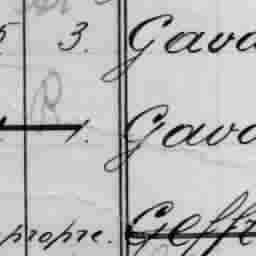 5 3. Gava
1. Gava
propre. Geffr